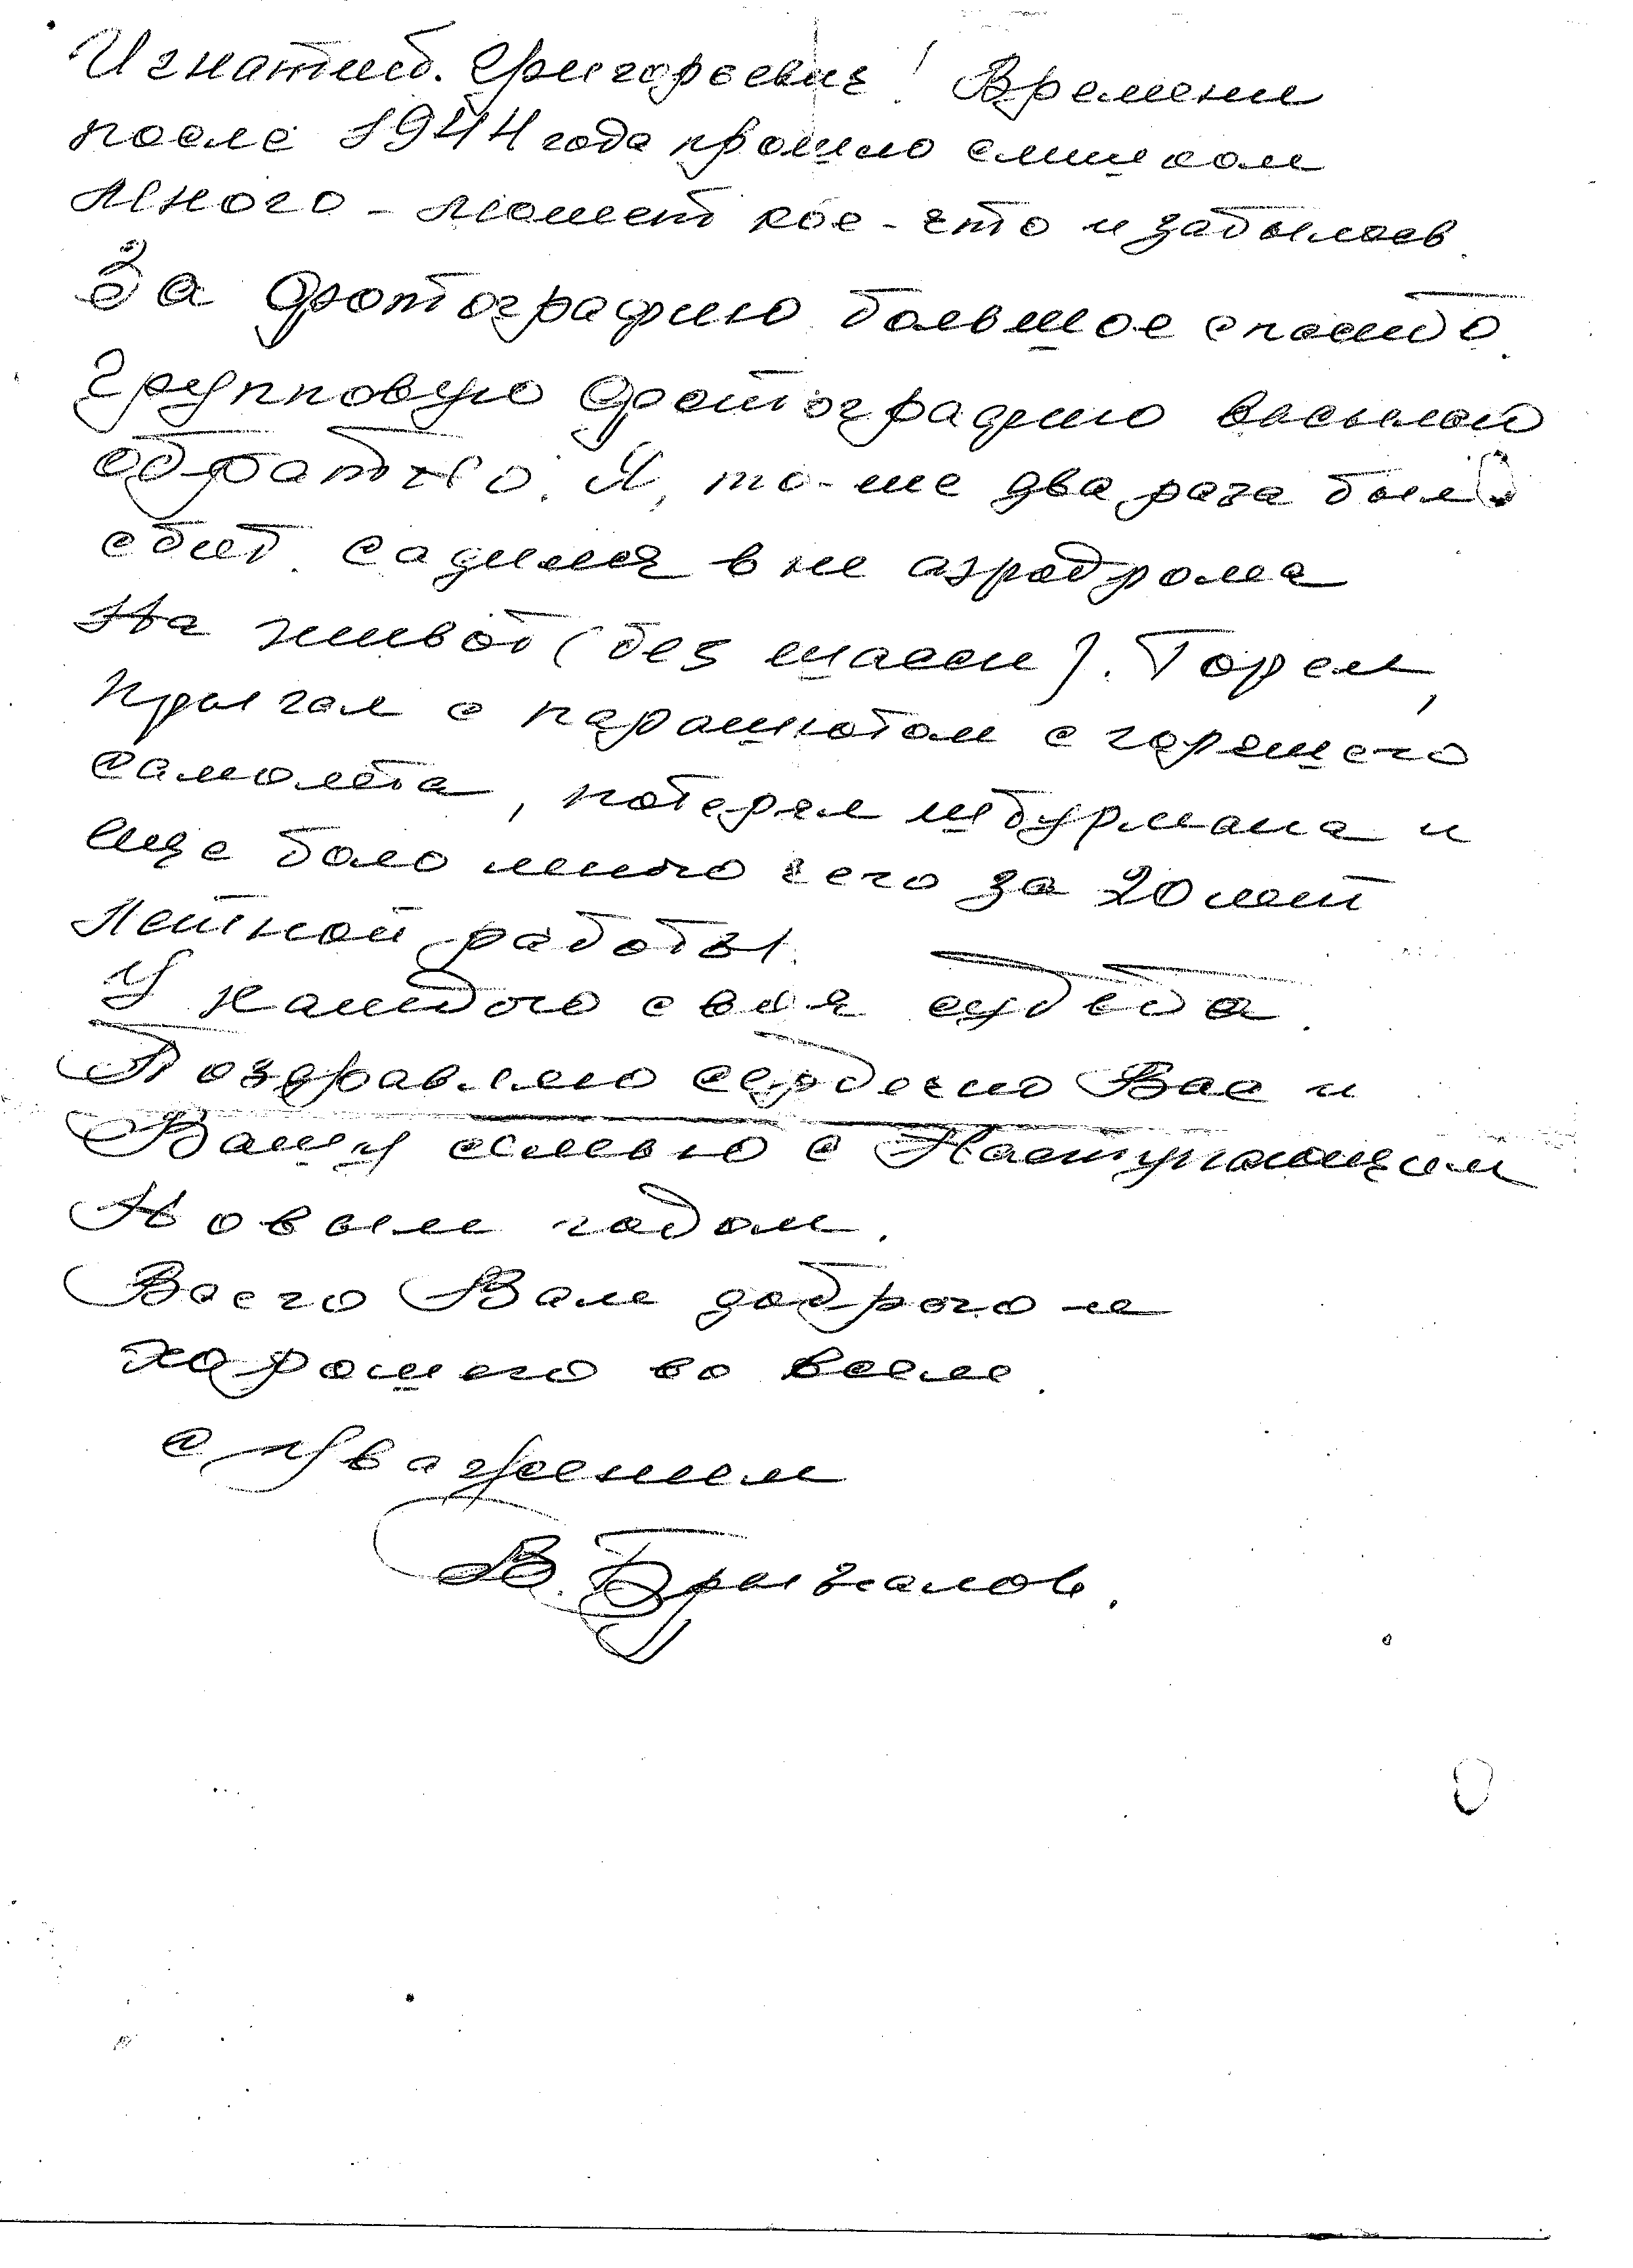 Игнатий Григорьевич! Времени
после 1944 года прошло слишком
много - может кое-что и забылось.
За фотографию большое спасибо.
Групповую фотографию высылаю
обратно. Я, то-же два раза был
сбит садился вне аэродрома
На живот (без шасси). Горел,
прыгал с парашютом с горящего
самолёта, потерял штурмана и
еще было много чего за 20 лет
Летной работы.
У каждого своя судьба.
Поздравляю сердечно Вас и
Вашу семью с Наступающим
Новым годом.
Всего Вам доброго и
хорошего во всем.
с уважением